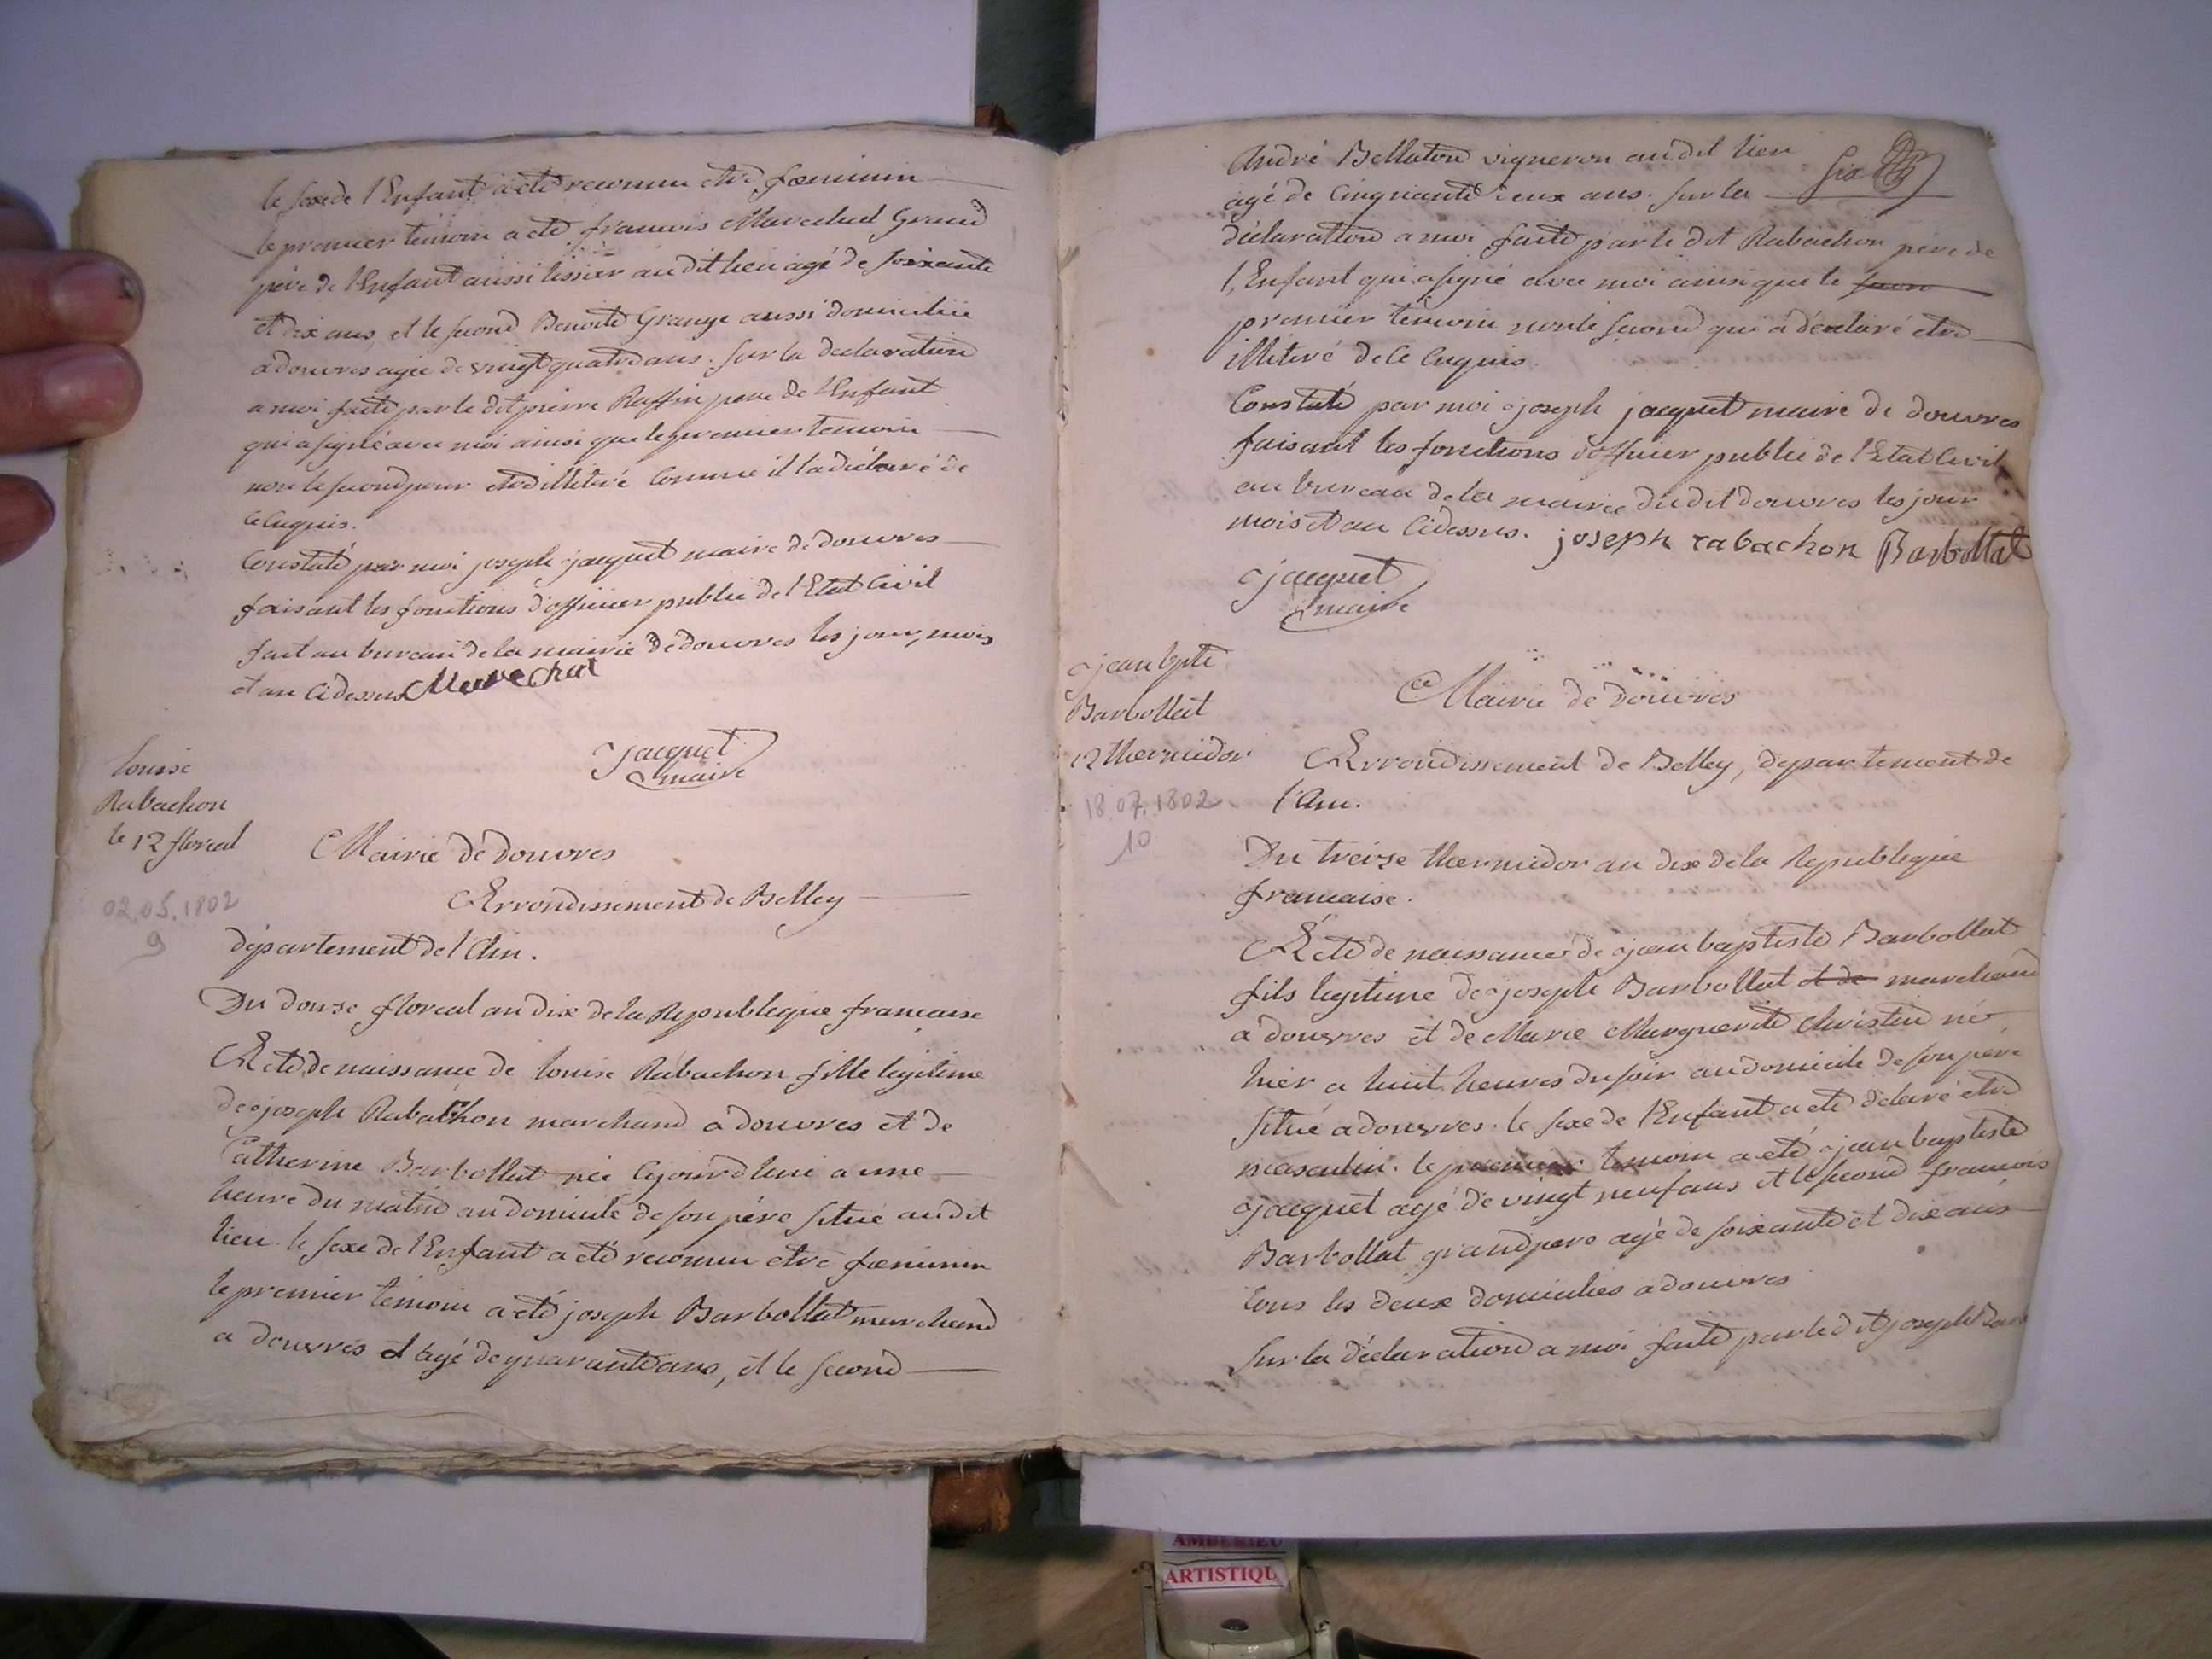 le sexe de l'Enfant a eté reconnu etre fœminin
le premier temoin a eté francois Marechal Grand
père de l'Enfant aussi tissier audit lieu agé de soixante
et dix ans, et le second Benoite Grange aussi domiciliée
a douvres agée de vingt quatre ans. sur la declaration
a moi faite par le dit pierre Ruffin pere de l'Enfant
qui a signé avec moi ainsi que le premier temoin
non le second pour etre illiteré comme il l'a déclaré de
ce enquis.
Constaté par moi joseph jacquet maire de douvres
faisant les fonctions d'officier public de l'Etat Civil
fait au bureau de la mairie de douvres les jour, mois
et an cidessus Marechal
jacquet
maire
louise
Rabachon
le 12 floreal
02.05.1802
9
Mairie de Douvres
Arrondissement de Belley
département de l'Ain.
Du douze floreal an dix de la Republique française
Acte de naissance de louise Rabachon fille légitime
de joseph Rabachon marchand a douvres et de
Catherine Barbollat née cejourdhui a une
heure du matin au domicile de son père situé audit
lieu. le sexe de l'Enfant a eté reconnu etre fœminin
le premier temoin a eté joseph Barbollat marchand
a douvres et agé de quarante ans, et le second
six
André Bellaton vigneron audit lieu
agé de cinquante deux ans. sur la
déclaration a moi faite par le dit Rabachon père de
l'Enfant qui a signé avec moi ainsi que le
premier temoin non le second qui a déclaré etre
illiteré de ce enquis.
Constaté par moi joseph jacquet maire de douvres
faisant les fonctions d'officier public de l'Etat Civil
au bureau de la mairie dudit douvres les jour
mois et an cidessus. joseph rabachon Barbollat
jacquet
maire
jean bpte
Barbollat
12 thermidor
18.07.1802
10
Mairie de Douvres
Arrondissement de Belley, departement de
l'Ain.
Du treize thermidor an dix de la Republique
francaise.
Acte de naissance de jean baptiste Barbollat
fils legitime de joseph Barbollat et de marchand
a douvres et de Marie Marguerite Christin né
hier a huit heures du soir au domicile de son pere
situé a douvres. le sexe de l'Enfant a eté déclaré etre
masculin. le premier temoin a eté jean baptiste
jacquet agé de vingt neuf ans et le second francois
Barbollat grand pere agé de soixante et dix ans
tous les deux domiciliés a douvres
Sur la déclaration a moi faite par le dit joseph Bar
AMBERIEU
ARTISTIQU